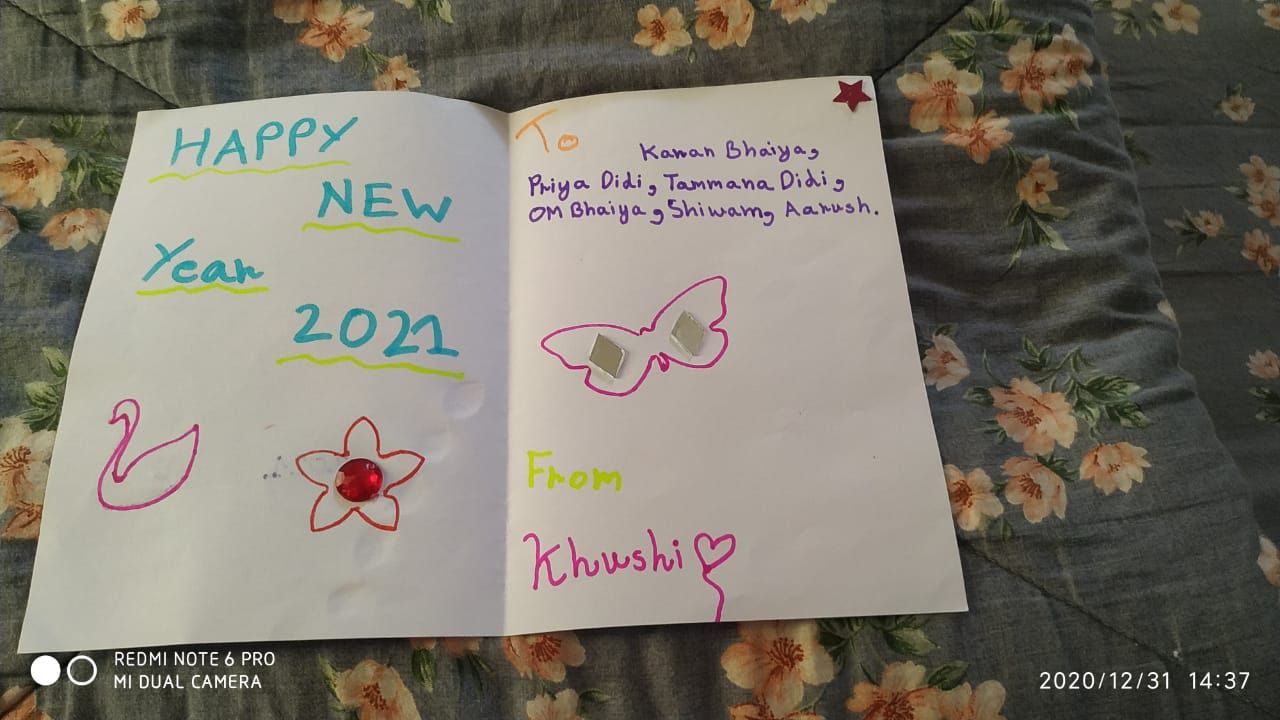 HAPPY
NEW
Year
2021
To
Karan Bhaiya,
Priya Didi, Tammana Didi,
OM Bhaiya, Shiwam, Aarush.
From
Khushi
REDMI NOTE 6 PRO
MI DUAL CAMERA
2020/12/31 14:37